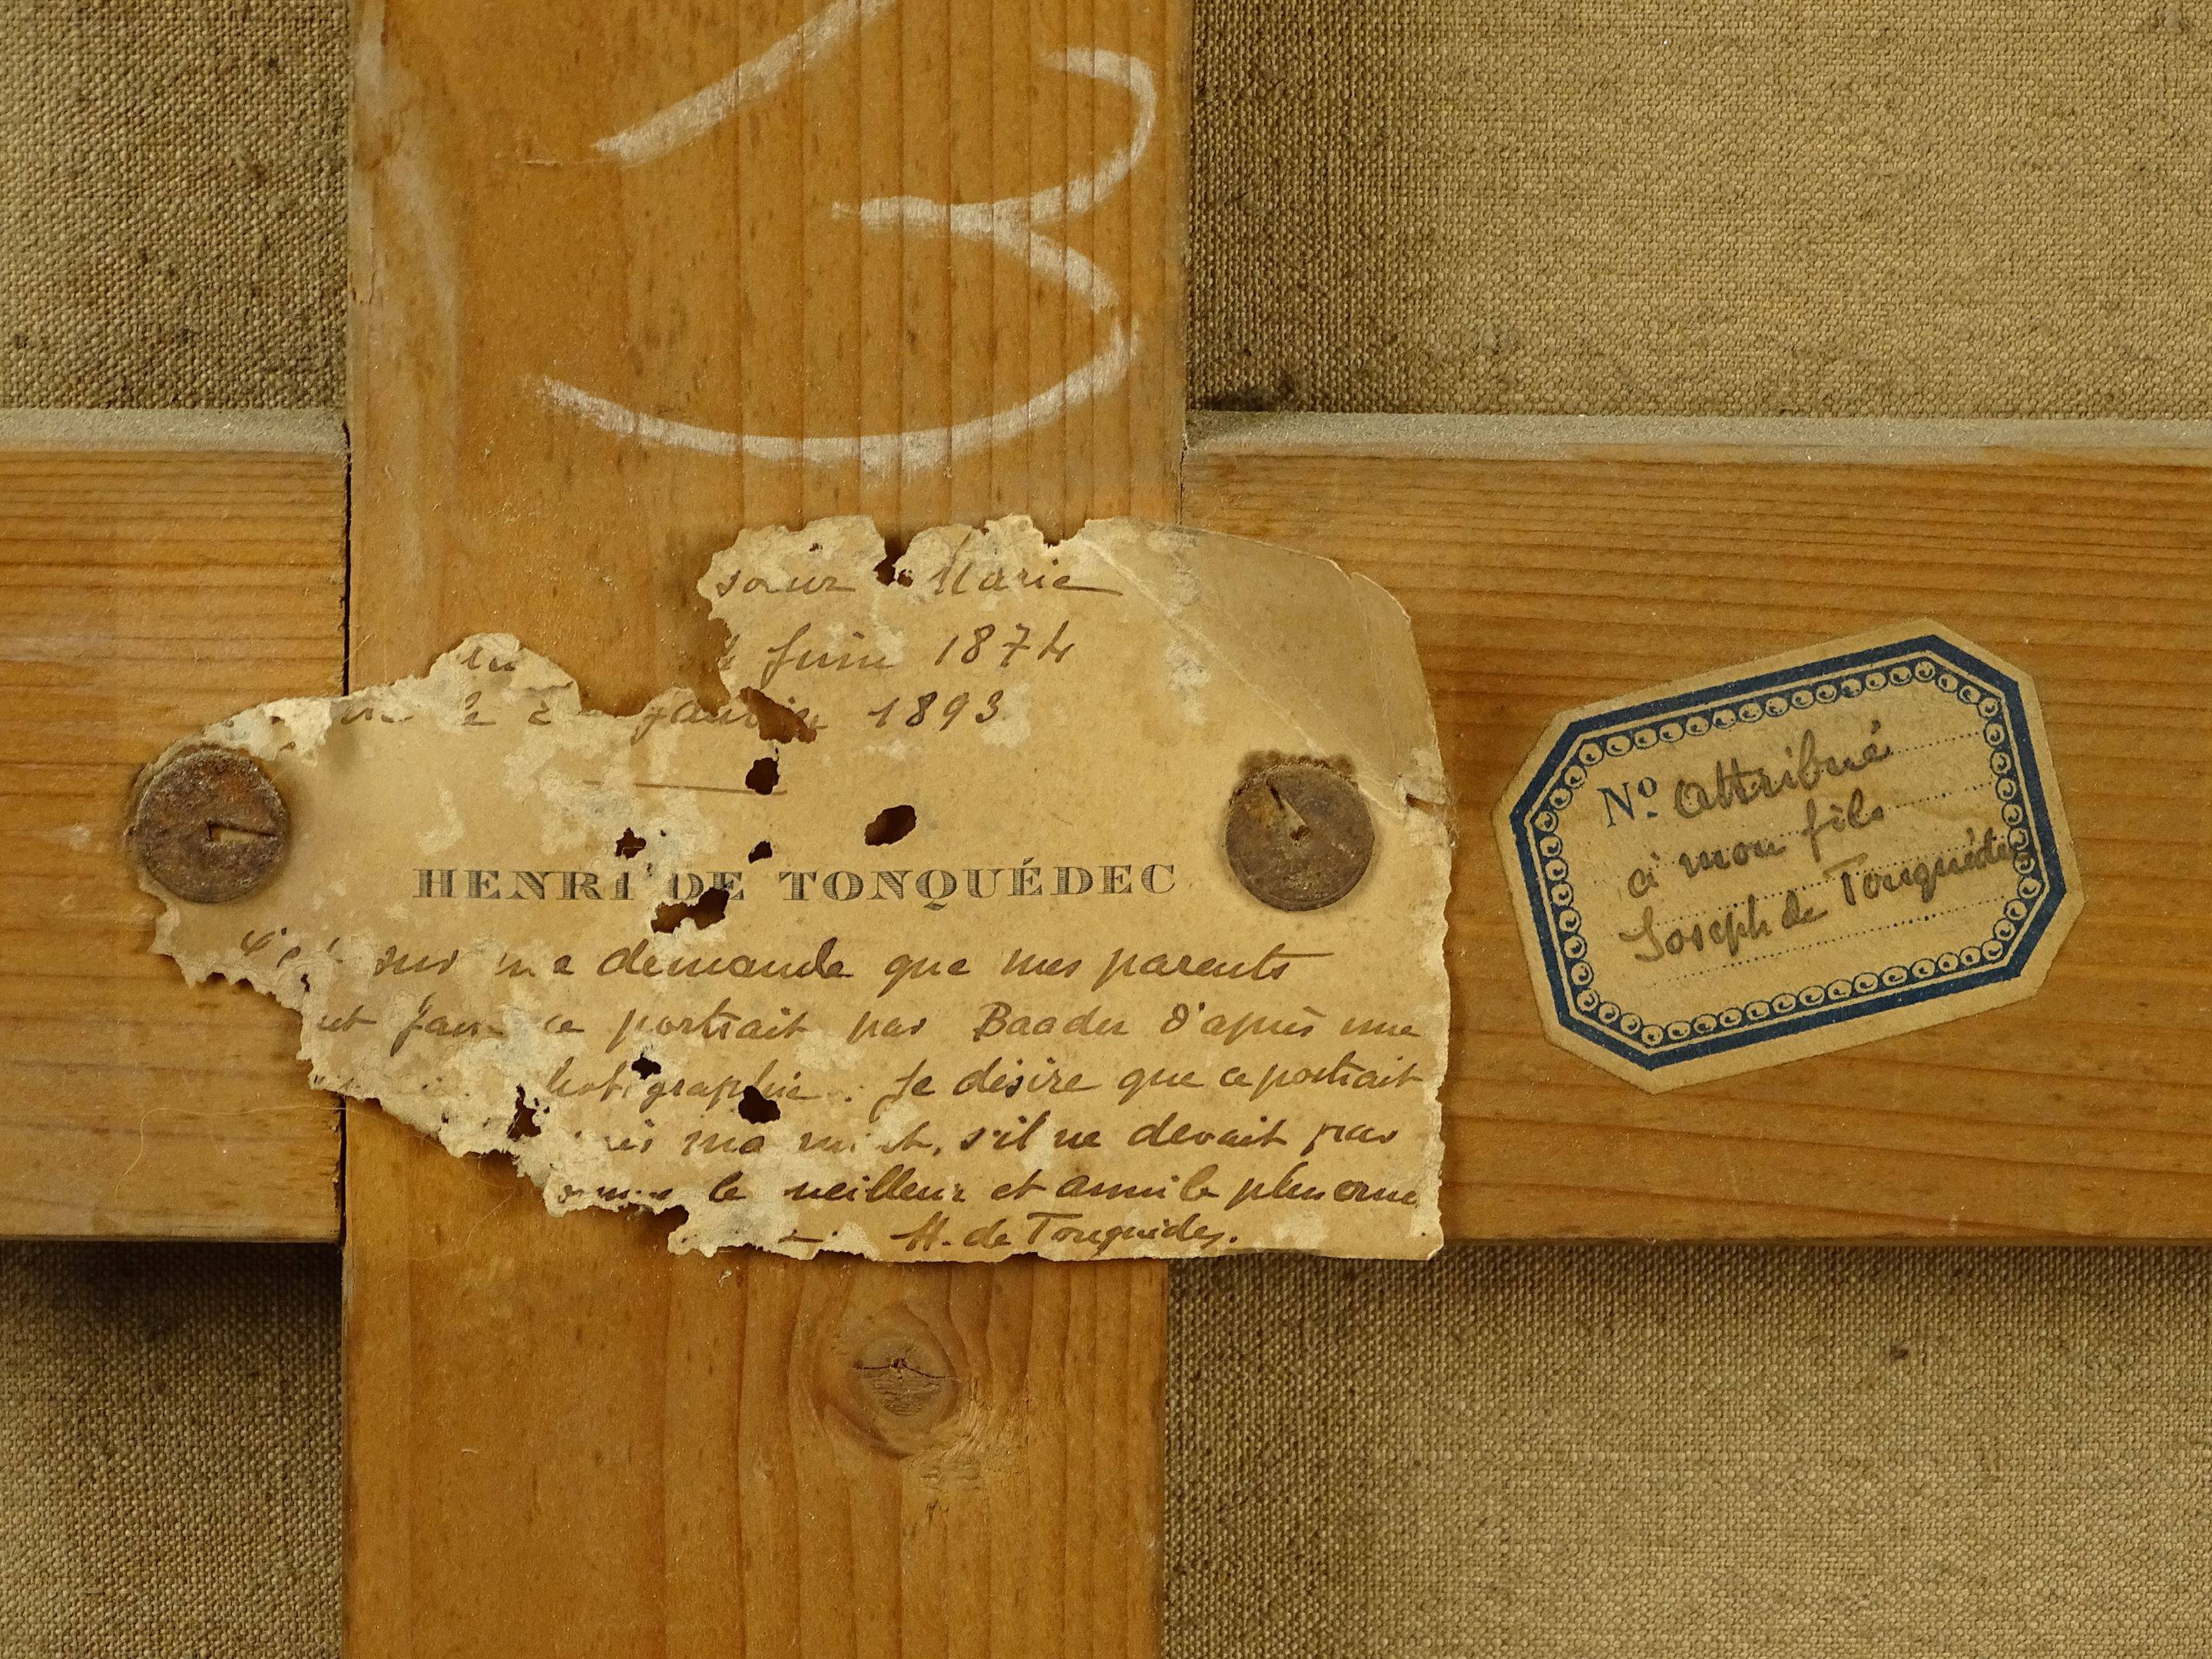 13
sœur Marie
Juin 1874
le janvier 1893
HENRI DE TONQUÉDEC
sur ma demande que mes parents
ce portrait par Baader d'après une
photographie. Je désire que ce portrait
ma mort, s'il ne devait pas
le meilleur et aussi le plus
H. de Tonquédec.
Nº Attribué
à mon fils
Joseph de Tonquédec